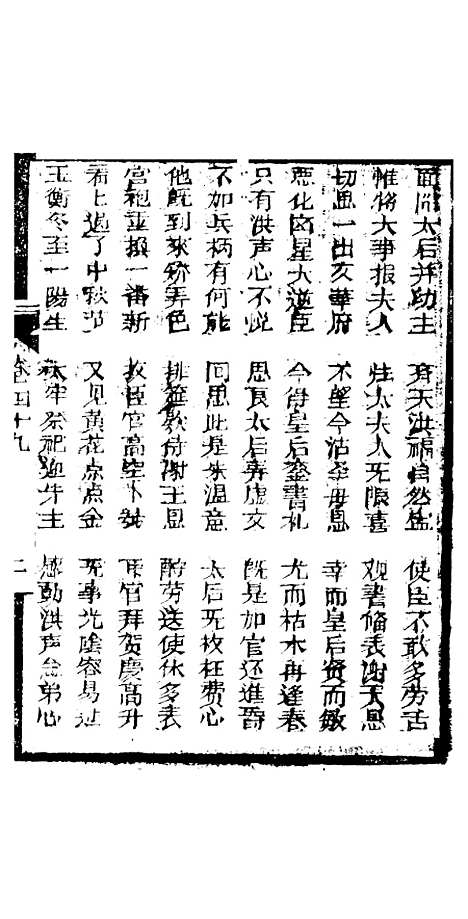 面陪太后并功主 齐天洪福自然生 使臣不敢多劳舌
惟将大事报夫人 杜太夫人无限喜 观書修表謝天恩
切思一出亥華府 不望今沾圣母恩 幸而皇后贤而敏
恶化凶星大逆臣 今得皇后鸾書礼 尤而枯木再逢春
只有洪声心不悦 思良太后弄虚文 既是加官还進爵
不如兵柄有何能 回思此是朱温意 太后无枚枉费心
他既到来矫弄色 排筵款待謝王恩 酹劳送使休多表
宫袍重換一番新 故臣官高 耳官拜贺慶高升
看上過了中秋节 又見黄花点点金 无事光陰容易
玉衡冬至一陽生 太牢祭祀迎牛主 感動洪声念弟心
四十九
二